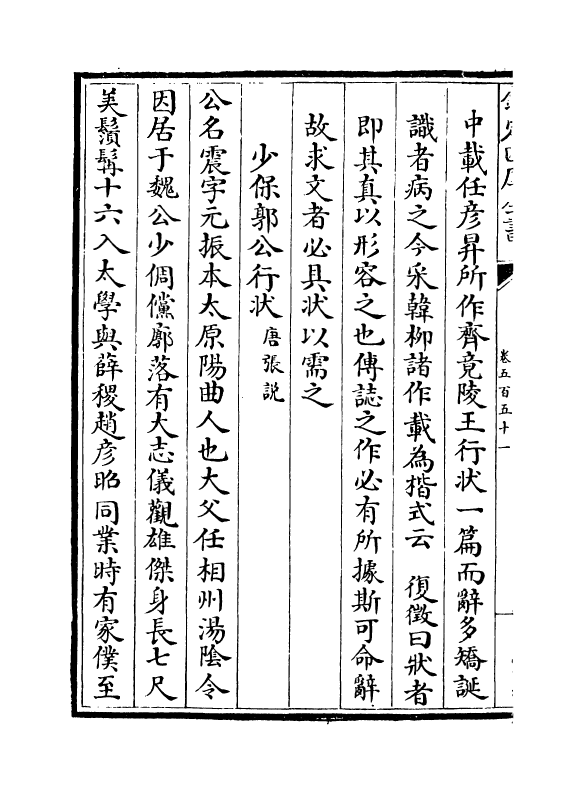 卷五百五十一
中載任彦昇所作齊竟陵王行状一篇而辭多矯誕
識者病之今采韓柳諸作載為楷式云　復徵曰狀者
即其真以形容之也傳誌之作必有所據斯可命辭
故求文者必具状以需之
少保郭公行状　唐張説
公名震字元振本太原陽曲人也大父任相州湯陰令
因居于魏公少倜儻廓落有大志儀觀雄傑身長七尺
美鬚髯十六入太學與薛稷趙彦昭同業時有家僕至